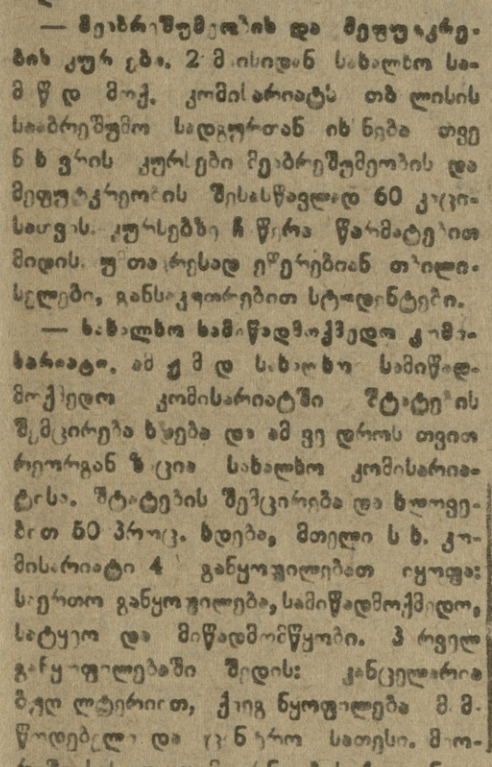 — მეაბრეშუმეობის და მეფუტკრე-
ბის კურსები. 2 მაისიდან სახალხო სა-
კომისარიატს თბილისის
სააბრეშუმო სადგურთან იხსნება თვე
ნახევრის კურსები მეაბრეშუმეობის და
მეფუტკრეობის შესასწავლად 60 კაცი-
სათვის. კურსებზე ჩაწერა წარმატებით
მიდის. უმთავრესად ეწერებიან თბილი-
სელები, განსაკუთრებით სტუდენტები.
— სახალხო სამიწადმოქმედო კომი-
სარიატი. ამ სახალხო სამიწად-
მოქმედო კომისარიატში შტატების
შემცირება ხდება და ამავე დროს თვით
რეორგანიზაცია სახალხო კომისარია-
ტისა. შტატების შემცირება და ხლოვე-
ბით 50 პროც. ხდება, მთელი ს. ს. კო-
მისარიატი 4 განყოფილებათ იყოფა:
საერთო განყოფილება, სამიწადმოქმედო,
სატყეო და მიწადმომწყობი. პირველ
განყოფილებაში შედის: კანცელარია
ბუღალტერიით, ქვეგანყოფილება
და სათესი.